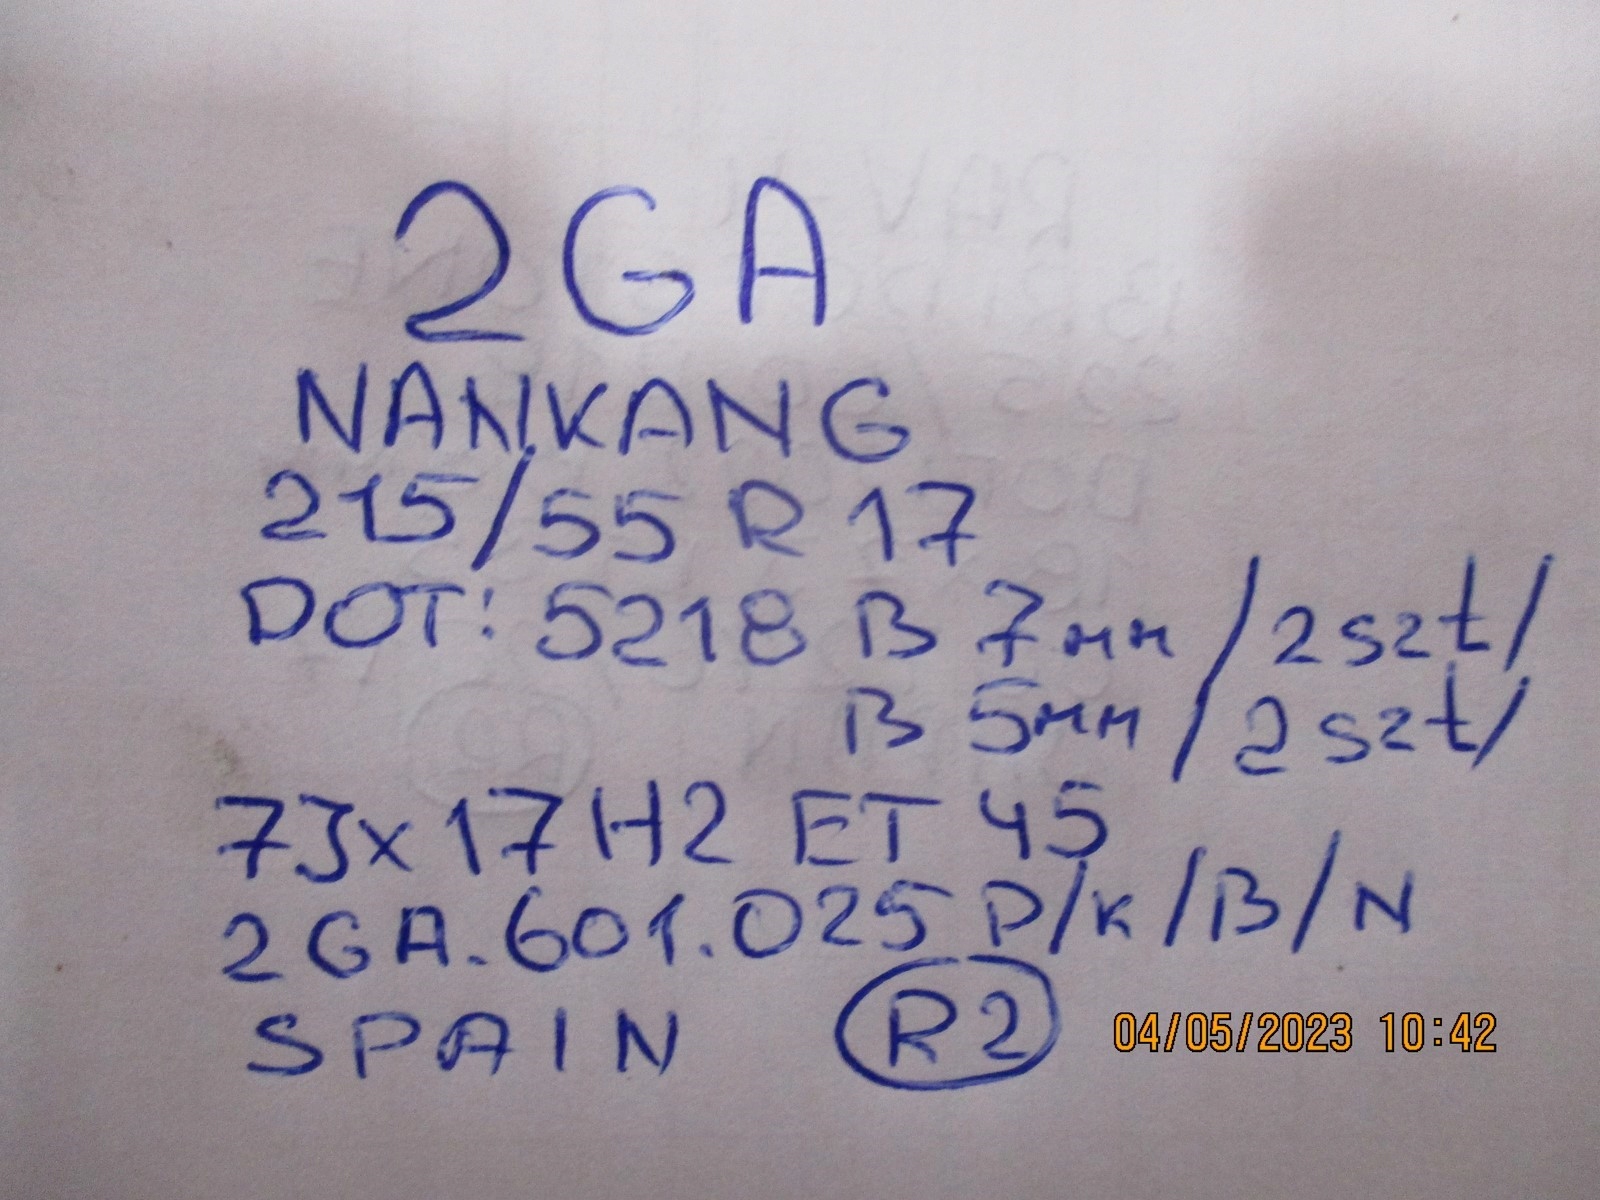 2GA
NANKANG
215/55 R 17
DOT: 5218 B 7мм /2szt/
B 5мм /2szt/
7Jx17H2 ET 45
2GA.601.025 P/K/B/N
SPAIN R2
04/05/2023 10:42